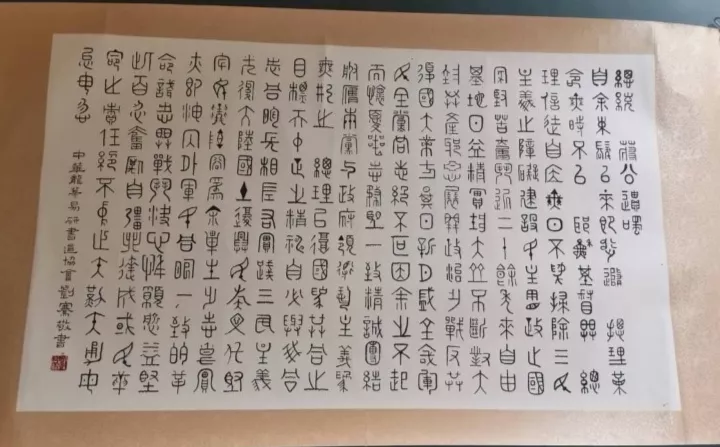 總統 蔣公遺囑
自余束髮以來即追隨 總理革
命無時不以 耶穌基督與 總
理信徒自居無日不為掃除三民
主義之障礙建設民主憲政之國
家艱苦奮鬥近二十餘年來自由
基地日益精實壯大並不斷對大
陸共產邪惡展開政治作戰反共
復國大業方期日新月盛全國軍
民全黨同志絕不可因余之不起
而懷憂喪志務望一致精誠團結
服膺本黨與政府領導奉主義為
無形之 總理以復國為共同之
目標而中正之精神自必與我同
志同胞長相左右實踐三民主義
光復大陸國土復興民族文化堅
守民主陣容為余畢生之志事實
亦即海內外軍民同胞一致的革
命職志與戰鬥決心惟願愈益堅
此百忍奮勵自強非達成國民革
命之責任絕不中止矢勤矢勇毋
怠毋忽
中華龍易研書道協會劉騫敬書